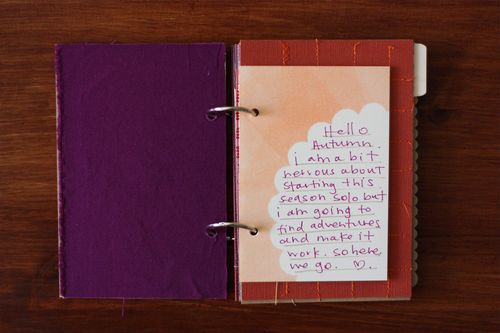 Hello
Autumn.
i am a bit
nervous about
starting this
season solo but
i am going to
find adventures
and make it
work. so here
we go. ♡.